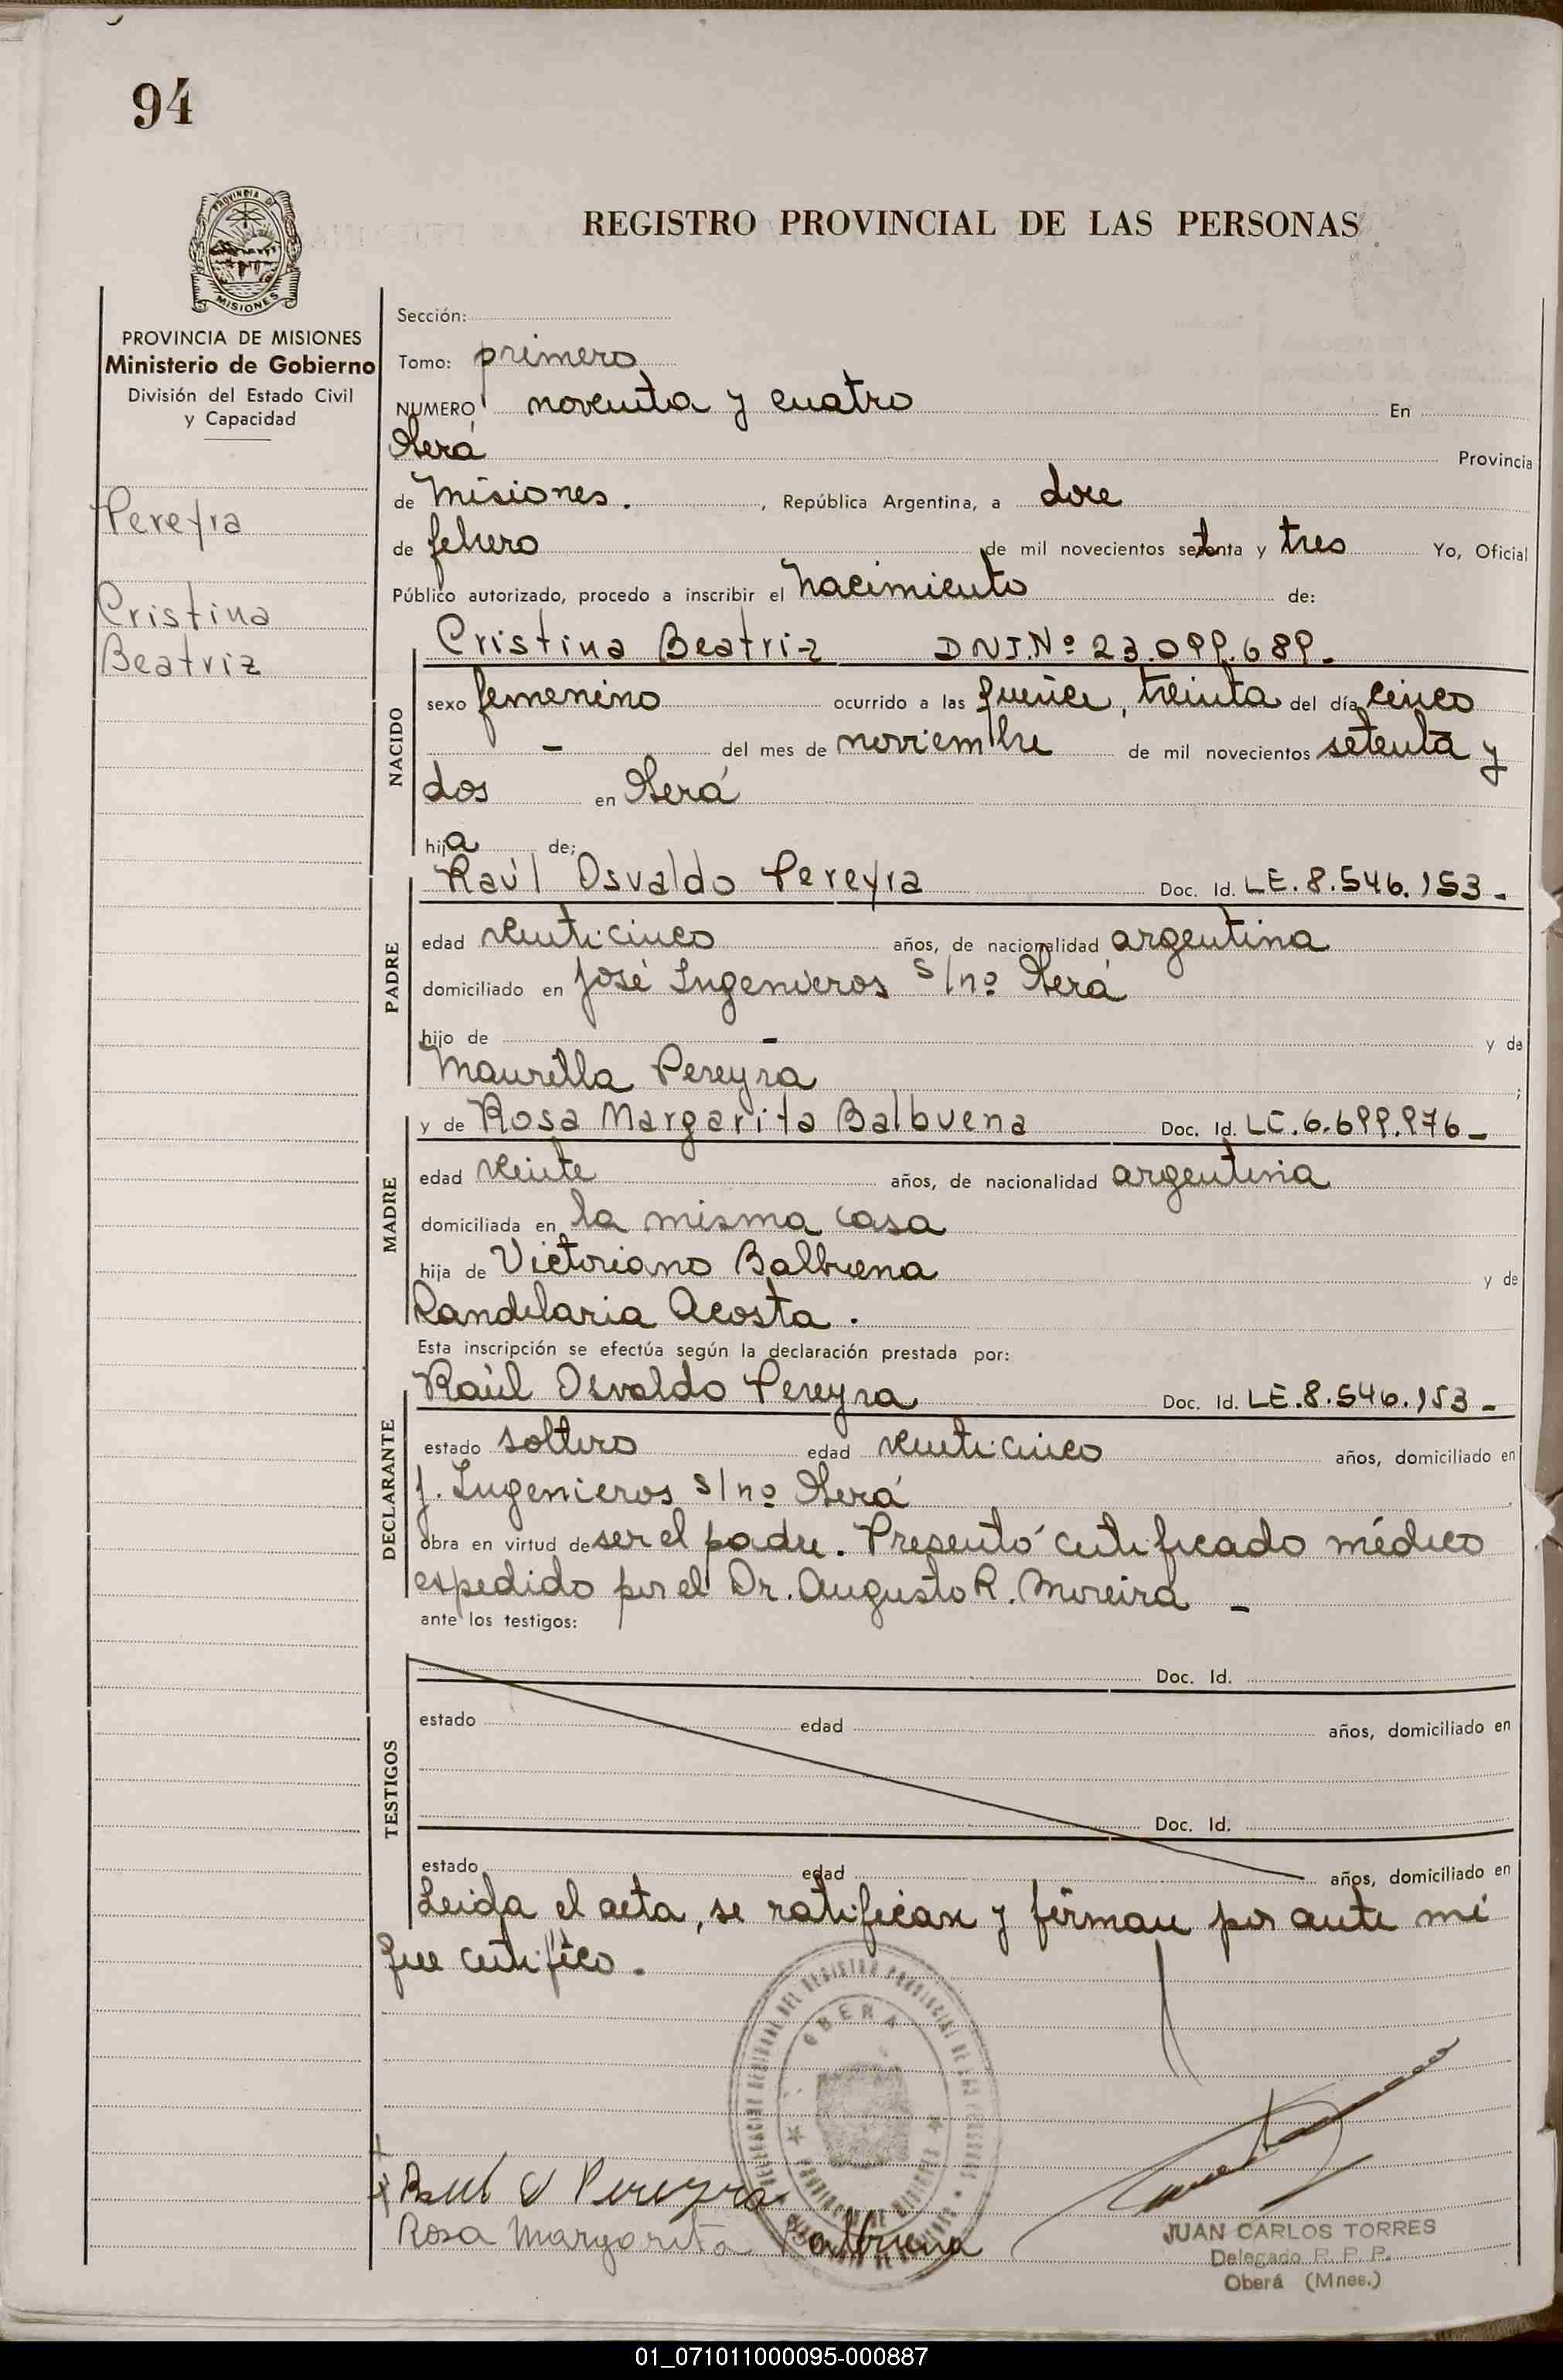 94
PROVINCIA DE
MISIONES
REGISTRO PROVINCIAL DE LAS PERSONAS
PROVINCIA DE MISIONES
Ministerio de Gobierno
División del Estado Civil
y Capacidad
Pereyra
Cristina
Beatriz
Sección:
Tomo: primero
NUMERO noventa y cuatro En
Oberá Provincia
de Misiones. , República Argentina, a doce
de febrero de mil novecientos setenta y tres Yo, Oficial
Público autorizado, procedo a inscribir el nacimiento de:
NACIDO
Cristina Beatriz DNI.Nº 23.099.689.-
sexo femenino ocurrido a las quince, treinta del día cinco
- del mes de noviembre de mil novecientos setenta y
dos en Oberá
hija de:
PADRE
Raúl Osvaldo Pereyra Doc. Id. LE.8.546.153.-
edad veinticinco años, de nacionalidad argentina
domiciliado en José Ingenieros s/nº Oberá
hijo de - y de
Maurilla Pereyra ;
MADRE
y de Rosa Margarita Balbuena Doc. Id. LC.6.699.976-
edad veinte años, de nacionalidad argentina
domiciliada en la misma casa
hija de Victoriano Balbuena y de
Candelaria Acosta.
Esta inscripción se efectúa según la declaración prestada por:
DECLARANTE
Raúl Osvaldo Pereyra Doc. Id. LE.8.546.153-
estado soltero edad veinticinco años, domiciliado en
J. Ingenieros s/nº Oberá
obra en virtud de ser el padre. Presentó certificado médico
espedido por el Dr. Augusto R. Moreira -
ante los testigos:
TESTIGOS
Doc. Id.
estado edad años, domiciliado en
Doc. Id.
estado edad años, domiciliado en
Leida el acta, se ratifican y firman por ante mi
que certifico.
DELEGACION REGIONAL DEL REGISTRO PROVINCIAL DE LAS PERSONAS
OBERA
PROVINCIA DE MISIONES
Raul O Pereyra
Rosa Margarita Balbuena
JUAN CARLOS TORRES
Delegado R. P. P.
Oberá (Mnes.)
01_071011000095-000887